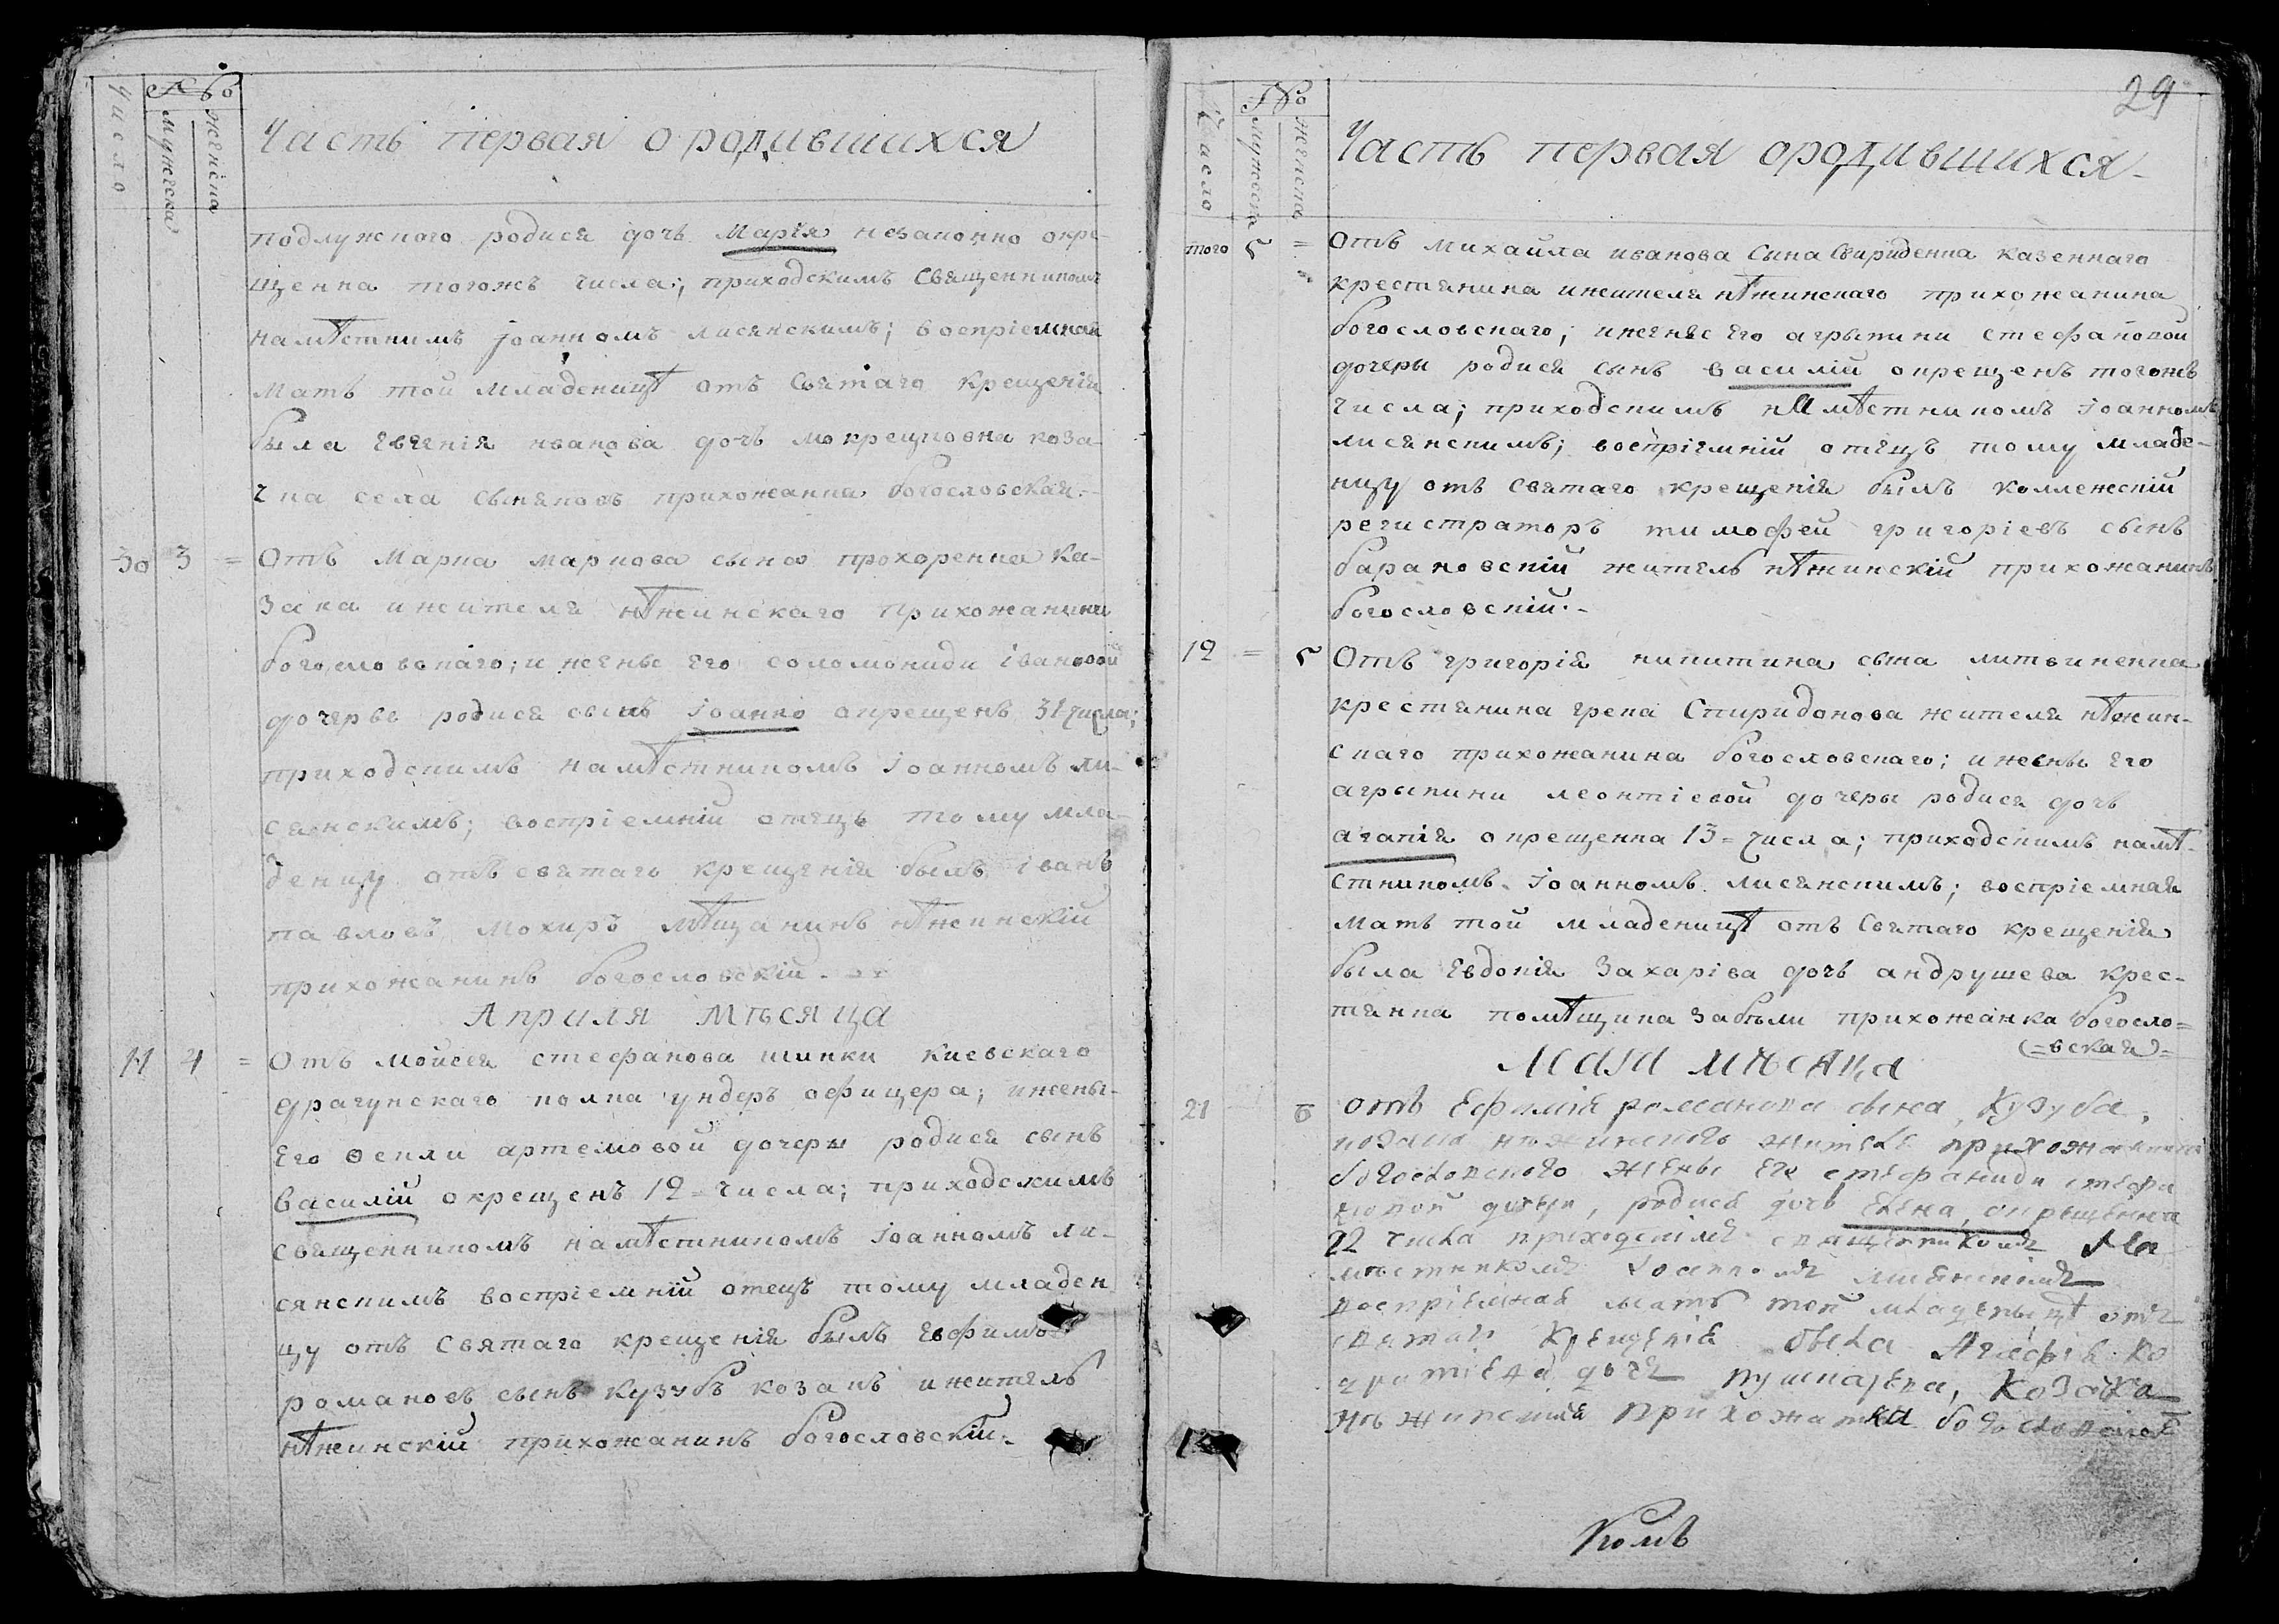 Число
Число мужеска женска
Часть первая о родившихся
подлужного родися дочь Марія незаконно окре-
щенна тогожъ числа; приходскимъ священникомъ
намѣстникомъ іоанномъ лисянскимъ; воспріемная
мать той младеницѣ отъ святаго крещенія
была Евгенія иванова дочъ мокрецковна коза-
чка села прихожанка богословская.-
30 3 = Отъ Марка маркова сына прохоренка ка-
зака и жителя нѣжинскаго прихожанина
богословскаго; и жены его соломониди івановой
дочеры родися сынъ іоаннъ окрещенъ 31 числа;
приходскимъ намѣстникомъ іоанномъ ли-
сянскимъ; воспріемній отецъ тому мла-
деницу отъ святаго крещенія былъ іванъ
павловъ мохиръ мѣщанинъ нѣжинскій
прихожанинъ богословскій.
Априля мѣсяца
11 4 = Отъ мойсея стефанова шинки киевскаго
драгунскаго полка ундеръ офицера; и жены
его Ѳекли артемовой дочеры родися сынъ
василій окрещенъ 12 = числа; приходскимъ
священникомъ намѣстникомъ іоанномъ ли-
сянскимъ воспріемній отецъ тому младен
цу отъ святаго крещенія былъ Евфимъ
романовъ сынъ кузубъ козакъ и житель
нѣжинскій прихожанинъ богословскій.-
29
Число мужеска женска
Часть первая о родившихся-
того 5 = Отъ михайла иванова сына свириденка казеннаго
крестянина и жителя нѣжинскаго прихожанина
богословскаго; и жены его агрыпини стефановой
дочеры родися сынъ василій окрещенъ тогожъ
числа; приходскимъ намѣстникомъ іоанномъ
лисянскимъ; воспріемній отецъ тому младе-
ницу отъ святаго крещенія былъ коллежскій
регистраторъ тимофей григоріевъ сынъ
барановскій житель нѣжинскій прихожанинъ
богословскій.-
12 = 5 Отъ григорія никитина сына литвиненка
крестянина грека Спиридонова жителя нѣжин-
скаго прихожанина богословскаго; и жены его
агрыпини леонтіевой дочеры родися дочъ
агапія окрещенна 13 = числа; приходскимъ намѣ-
стникомъ іоанномъ лисянскимъ; воспріемная
мать той младеницѣ отъ святаго крещенія
была Евдокія захаріва дочъ андрушева крес-
тянка помѣщика забѣли прихожанка богосло=
(=вская)=
Мaiя мѣсяца
21 6 отъ Ефимія романова сына Кузуба,
козака нѣжинского жителя прихожанина
богословского жены его стефаниди стефа
новой дочери, родися дочь Елена, окрещенна
22 числа приходскимъ священникомъ На
мѣстникомъ Іоанномъ лисянскимъ
воспріемная мать той младеницѣ отъ
святаго крещенія была Агафія
дочь Козачка
нѣжинская прихожанка богословская
комъ